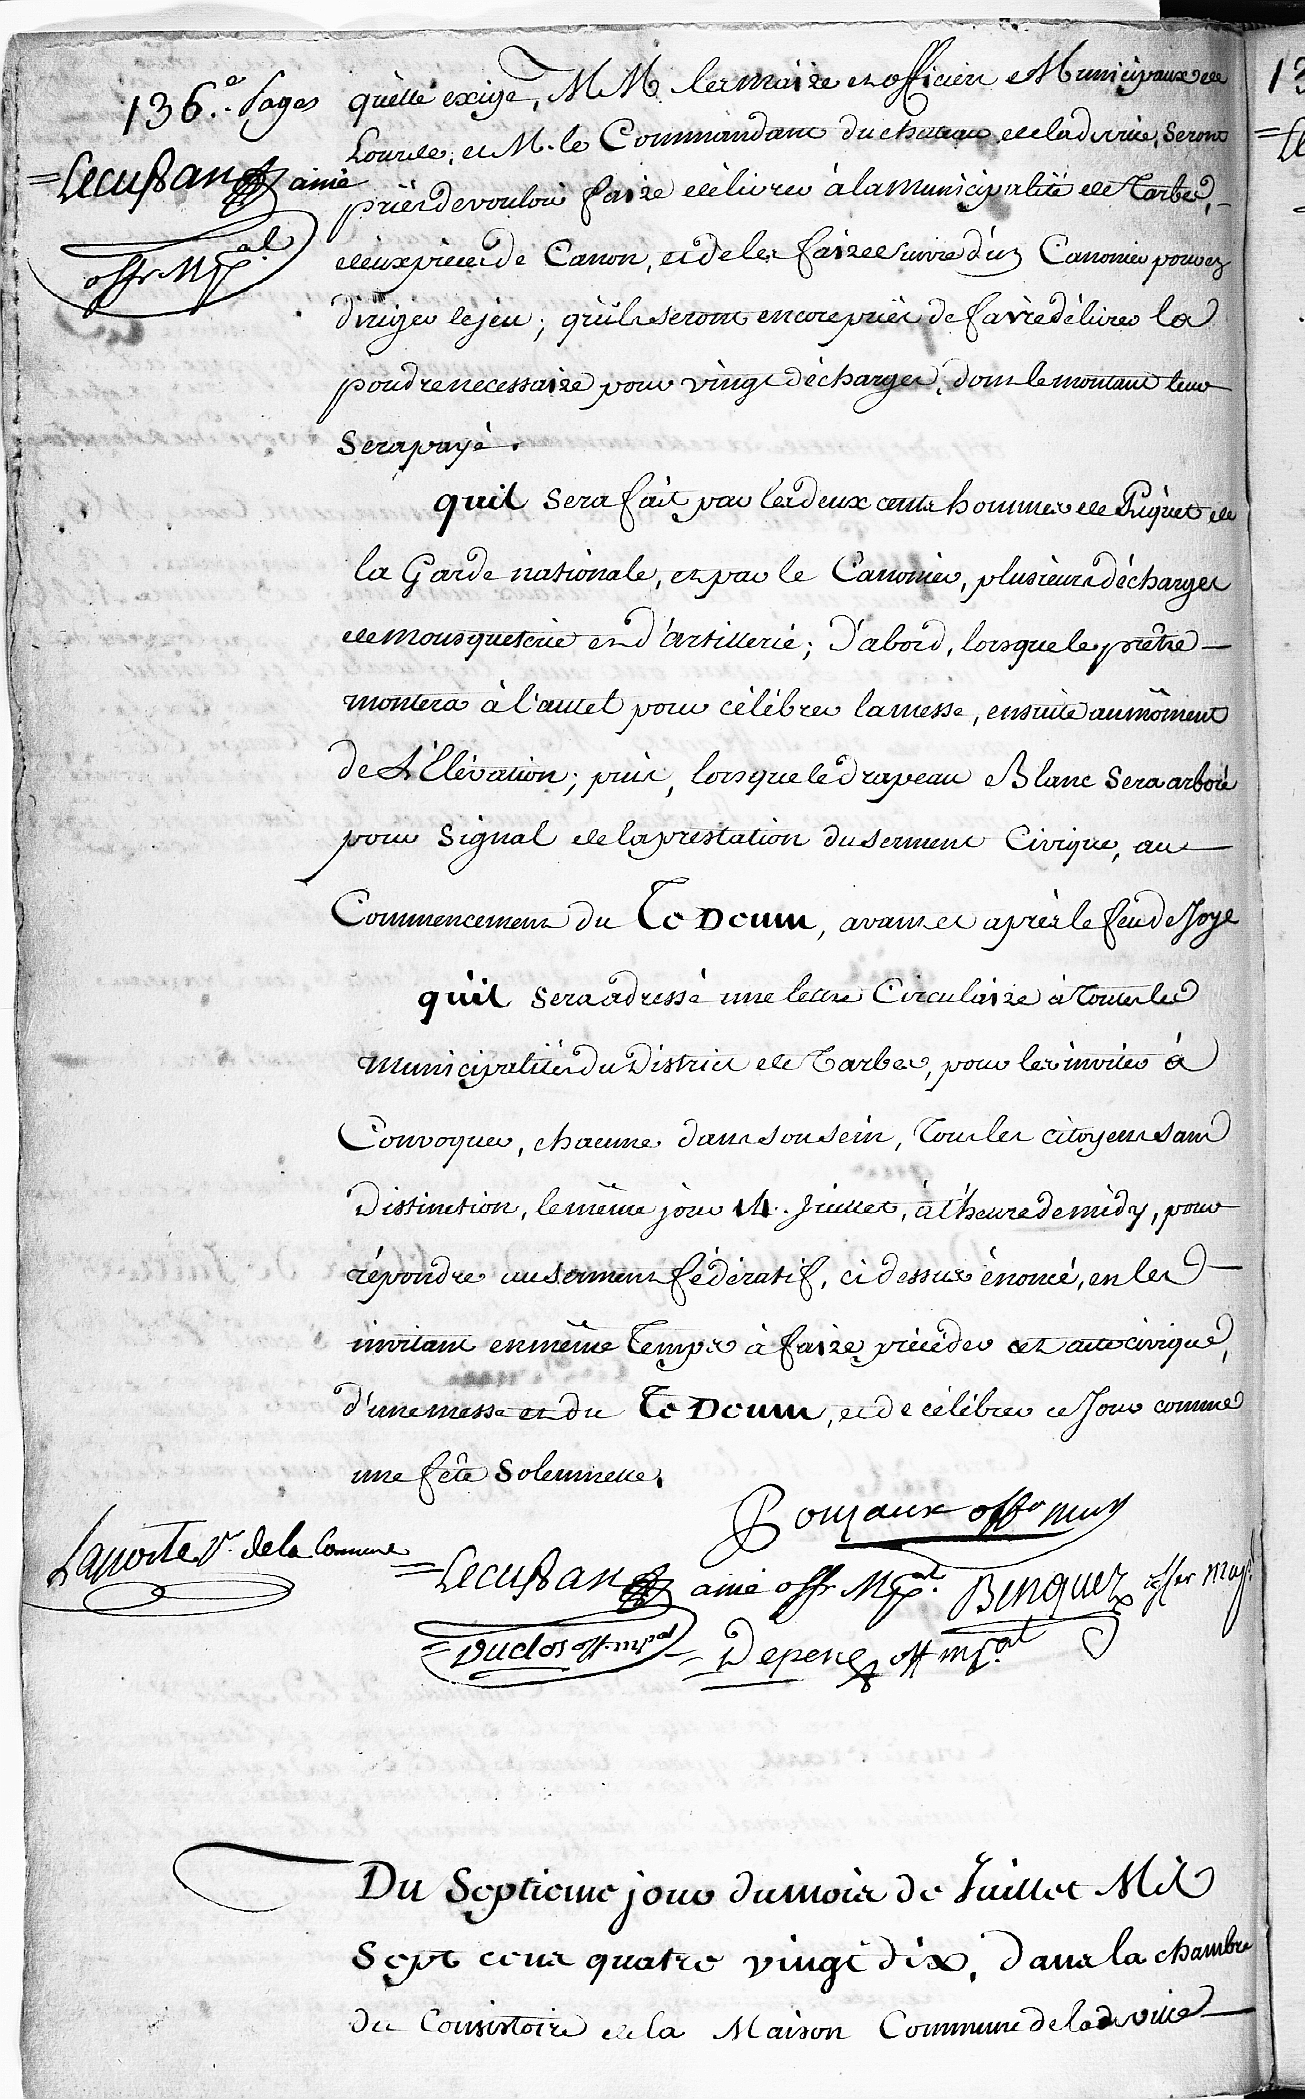 136.e Pages
= Lecussan ainé
offr. Mpal.
qu'elle exige, MM. les maire et officiers Municipaux de
Lourde, et M. le Commandant du chateau de lad. ville, Seront
priés de vouloir faire délivrer à la municipalité de Tarbes,
deux pieces de Canon, et de les faire suivre d'un Canonier pour en
diriger le jeu; qu'ils seront encore priés de faire délivrer la
poudre necessaire pour vingt décharges, dont le montant leur
Sera payé.
qu'il Sera fait par les deux cents hommes de Piquet de
la Garde nationale, et par le Canonier, plusieurs décharges
de mousqueterie et d'artillerie; d'abord, lorsque le prêtre
montera à l'autel pour célébrer la messe, ensuite au môment
de L'Elévation; puis, lorsque le drapeau Blanc Sera arboré
pour Signal de la prestation du serment Civique, au
Commencement du Te Deum, avant et après le feu de Joye
qu'il Sera adressé une lettre Circulaire à toutes les
Municipalités du District de Tarbes, pour les inviter à
Convoquer, chacune dans son sein, Tous les citoyens sans
Distinction, le même jour 14. Juillet, à l'heure de midy, pour
répondre au serment fédératif, ci dessus énoncé, en les
invitant en même Temps à faire précéder cet acte civique,
d'une messe et du Te Deum, et de célébrer ce Jour comme
une fête Solemnelle.
offr mun
Laporte Pr. de la Commune
= Lecussan ainé offr. Mpal. Benquez offier mapl
= Duclos off. mpal = Depene off mpal
Du Septieme jour du mois de Juillet Mil
Sept cent quatre vingt dix, dans la chambre
du Consistoire de la Maison Commune de lad. ville
13
=Le